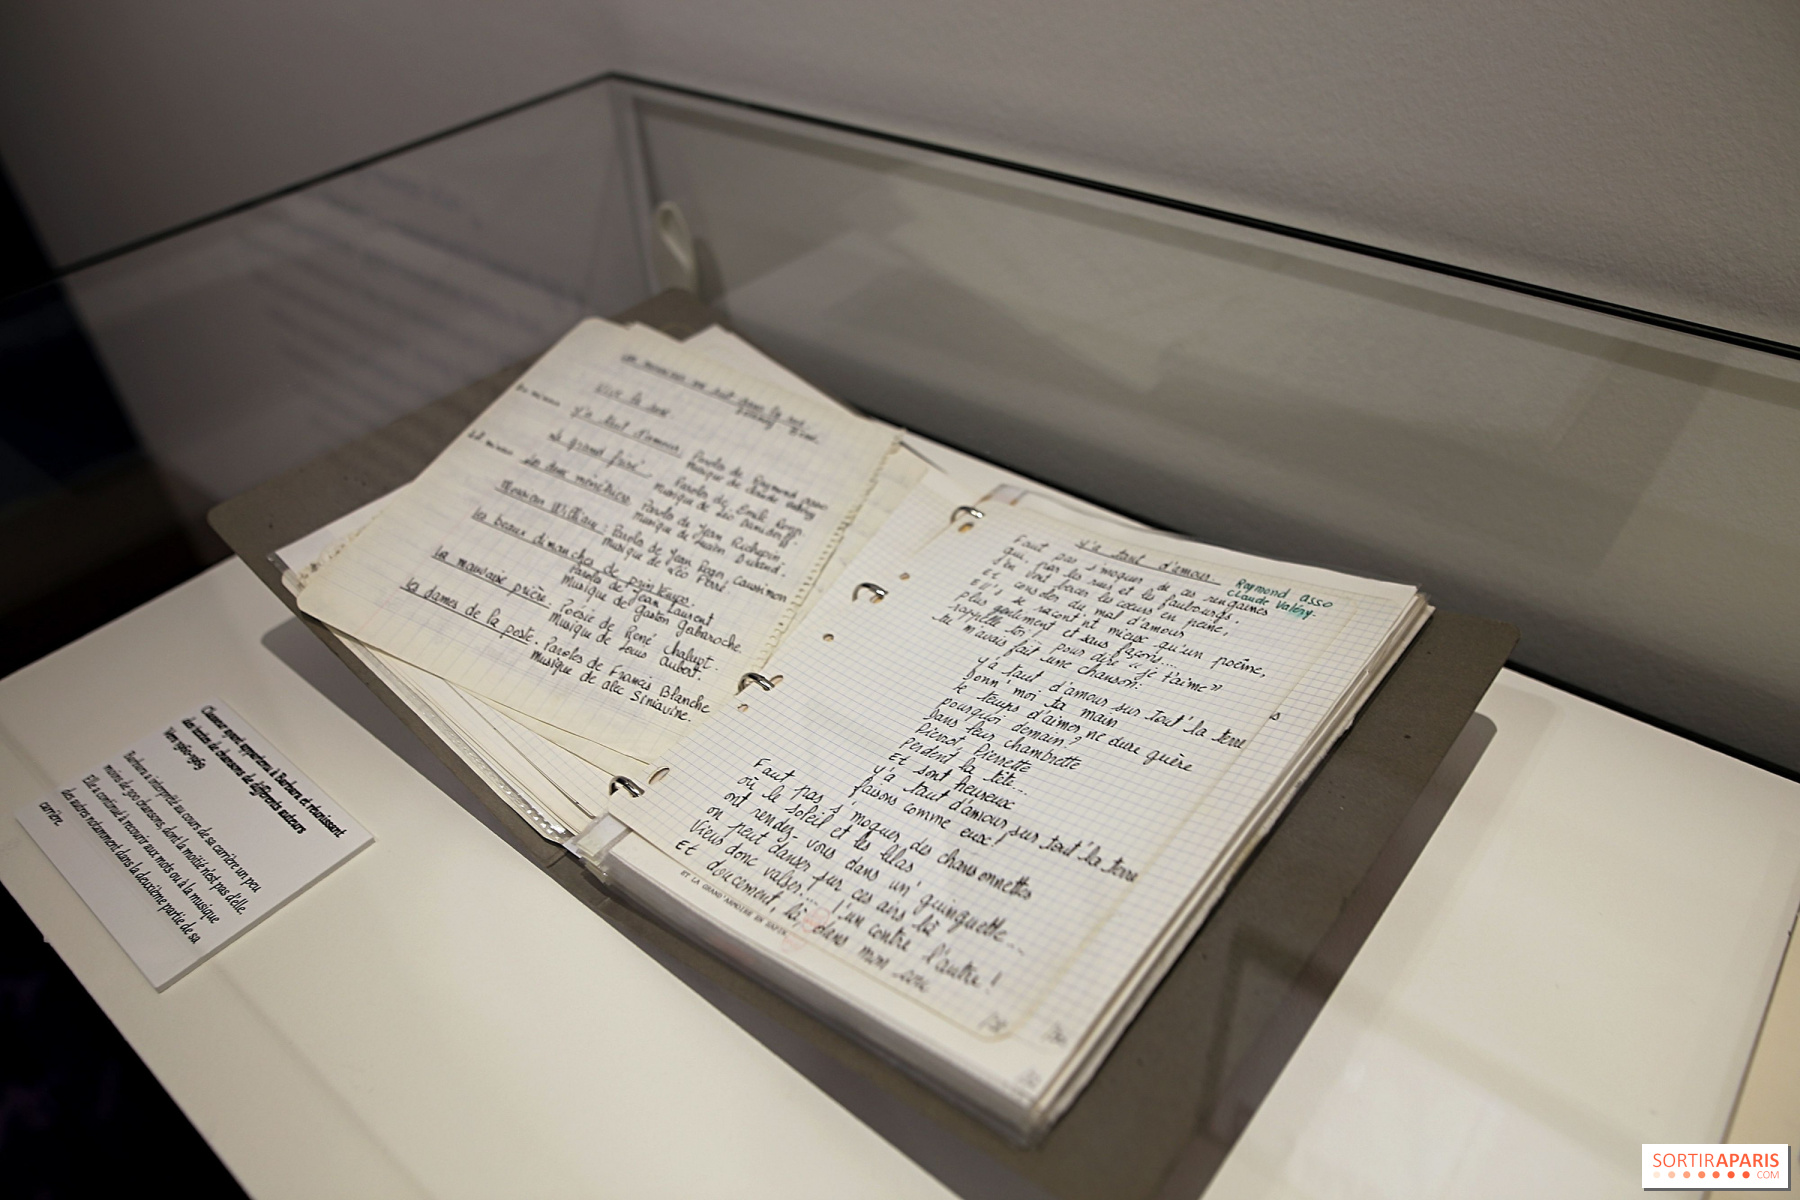 Vive la rose
Y'a tant d'amour. Paroles de Raymond Asso
Musique de Claude Valéry
Le grand frisé. Paroles de Emile Ronn
Musique de Léo Daniderff.
Les deux ménétriers. Paroles de Jean Richepin
Musique de Durand.
Monsieur William : Paroles de Jean Roger Caussimon
Musique de Léo Ferré.
Les beaux dimanches de printemps.
Paroles de Jean Laurent
Musique de Gaston Gabaroche.
La mauvaise prière. Poésie de René Chalupt.
Musique de Louis Aubert.
Les dames de la poste. Paroles de Francis Blanche
Musique de Alec Siniavine.
Y'a tant d'amour
Raymond Asso
Claude Valéry.
Faut pas s'moquer de ces rengaines
qui, par les rues et les faubourgs,
S'en vont bercer les cœurs en peine,
Et consoler du mal d'amour
Ell's se racont'nt mieux qu'un poème,
plus gentiment et sans façons...
rappelle toi ! pour dire "je t'aime"
tu m'avais fait une chanson.
Y'a tant d'amour sur tout' la terre
Donn' moi ta main
le temps d'aimer ne dure guère
pourquoi demain ?
Dans leur chambrette
Pierrot, Pierrette
Perdent la tête...
Et sont heureux
Y'a tant d'amour sur tout' la terre
faisons comme eux !
Faut pas s'moquer des chansonnettes
où le soleil et les lilas
ont rendez-vous dans un' guinguette...
on peut danser sur ces airs là
Viens donc valser... l'un contre l'autre !
Et doucement, là, dans mon cou
ET LA GRAND'
Classeur ayant appartenu à Barbara et réunissant
des textes de chansons de différents auteurs
Vers 1960-1965
Barbara a interprété au cours de sa carrière un peu
moins de 300 chansons, dont la moitié n'est pas d'elle.
Elle a continué à recourir aux mots ou à la musique
des autres notamment dans la deuxième partie de sa
carrière.
SORTIRAPARIS
.COM